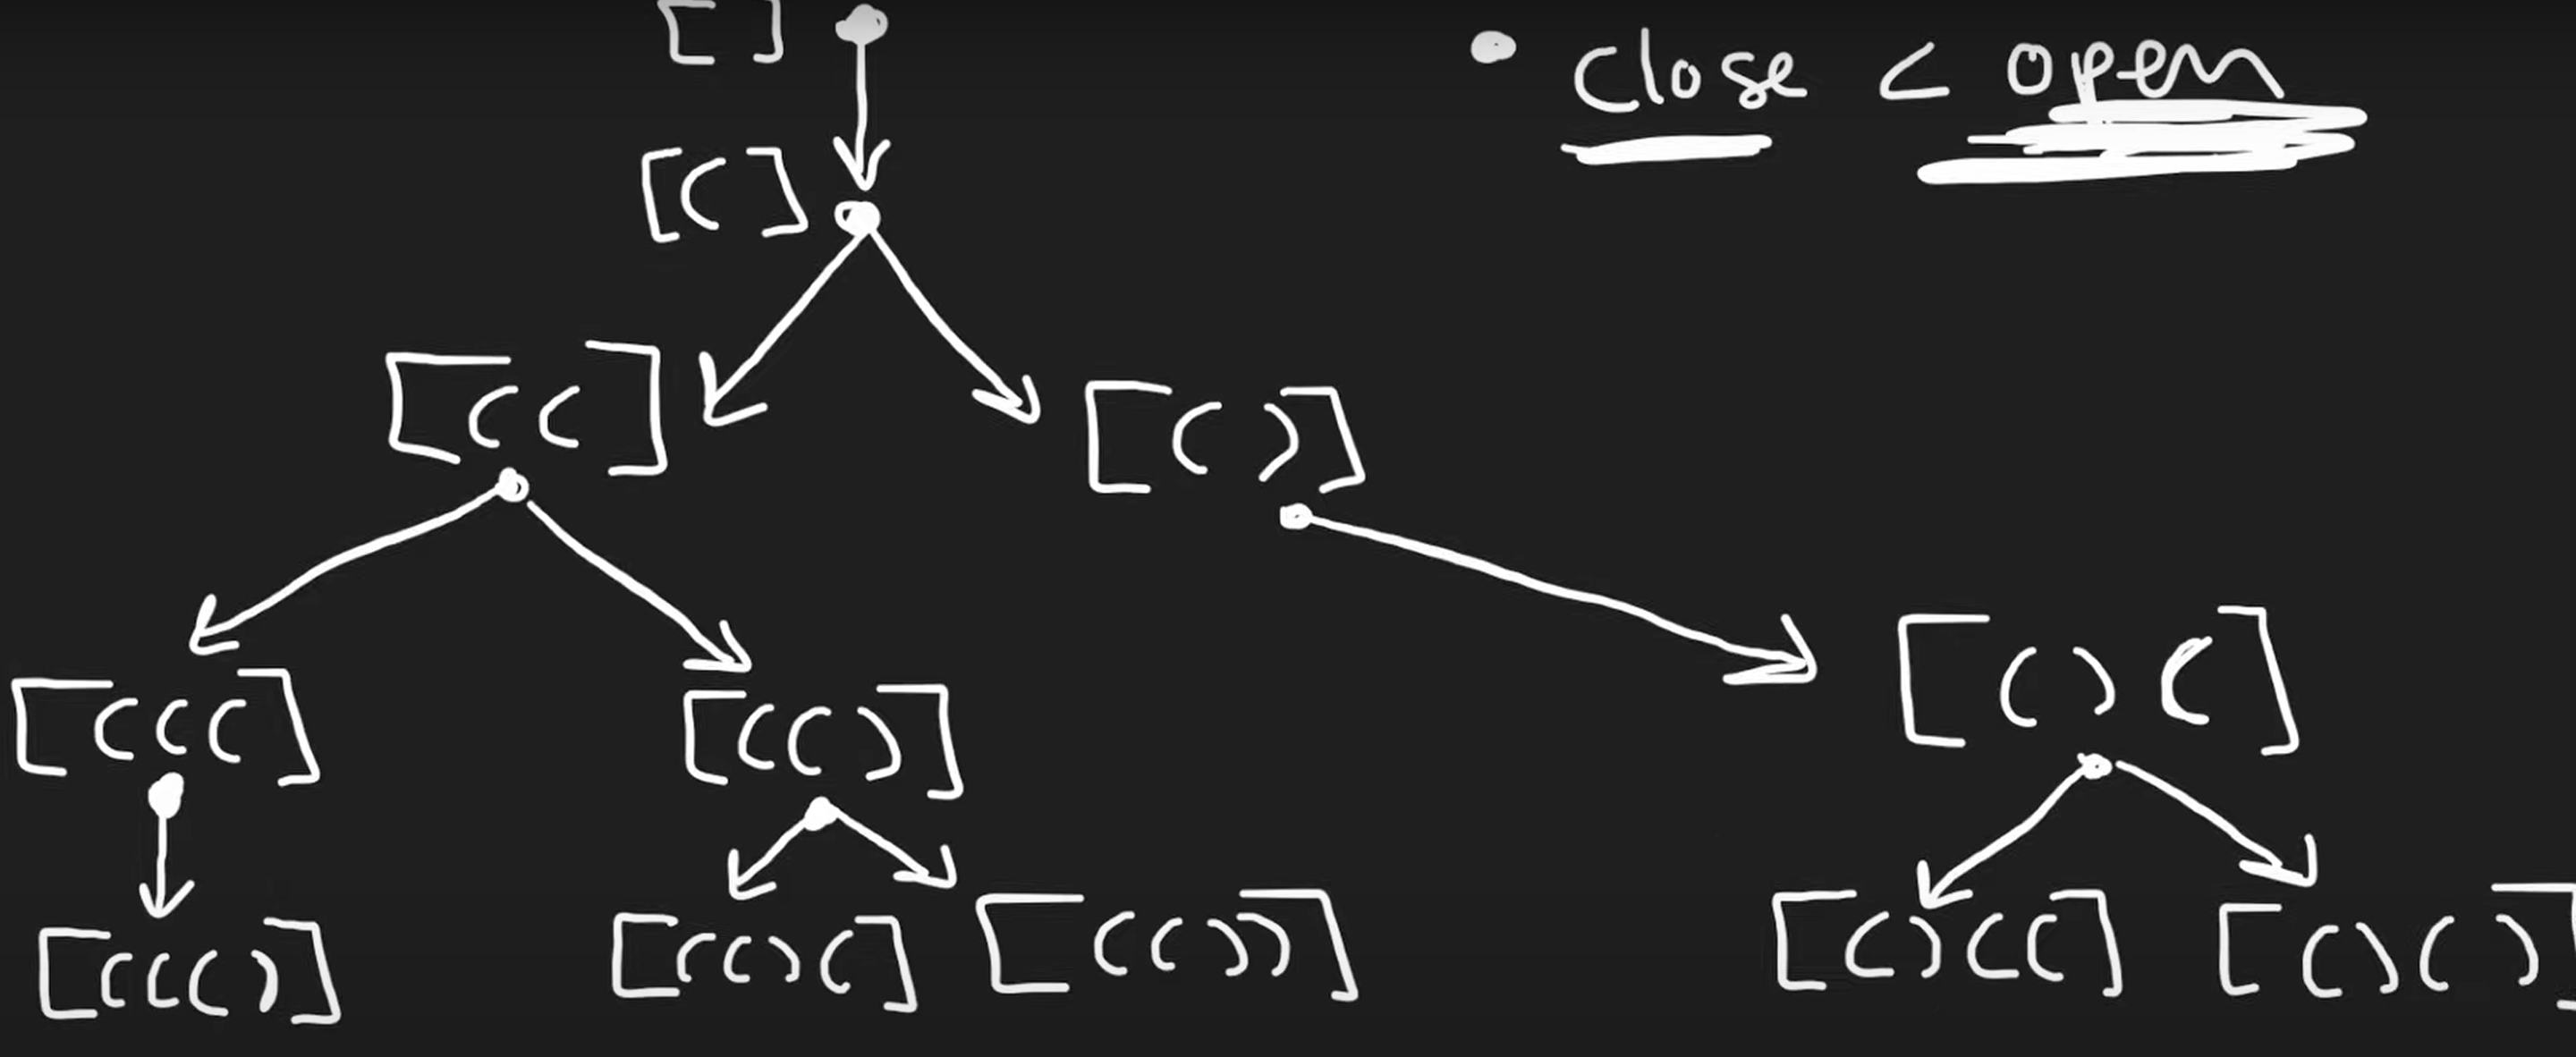 [ ]
• close < open
[ ( ]
[ ( ( ]
[ ( ) ]
[ ( ( ( ]
[ ( ( ) ]
[ ( ) ( ]
[ ( ( ( ) ]
[ ( ( ) ( ]
[ ( ( ) ) ]
[ ( ) ( ( ]
[ ( ) ( ) ]